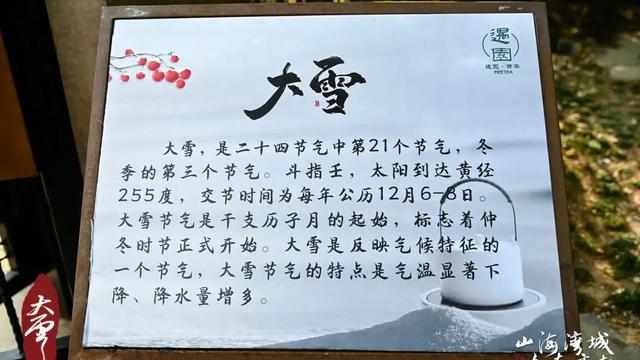 遇園
遇園·有茶
MEETEA
大雪
大雪，是二十四节气中第21个节气，冬
季的第三个节气。斗指壬，太阳到达黄经
255度，交节时间为每年公历12月6-8日。
大雪节气是干支历子月的起始，标志着仲
冬时节正式开始。大雪是反映气候特征的
一个节气，大雪节气的特点是气温显著下
降、降水量增多。
大雪
山海湾城